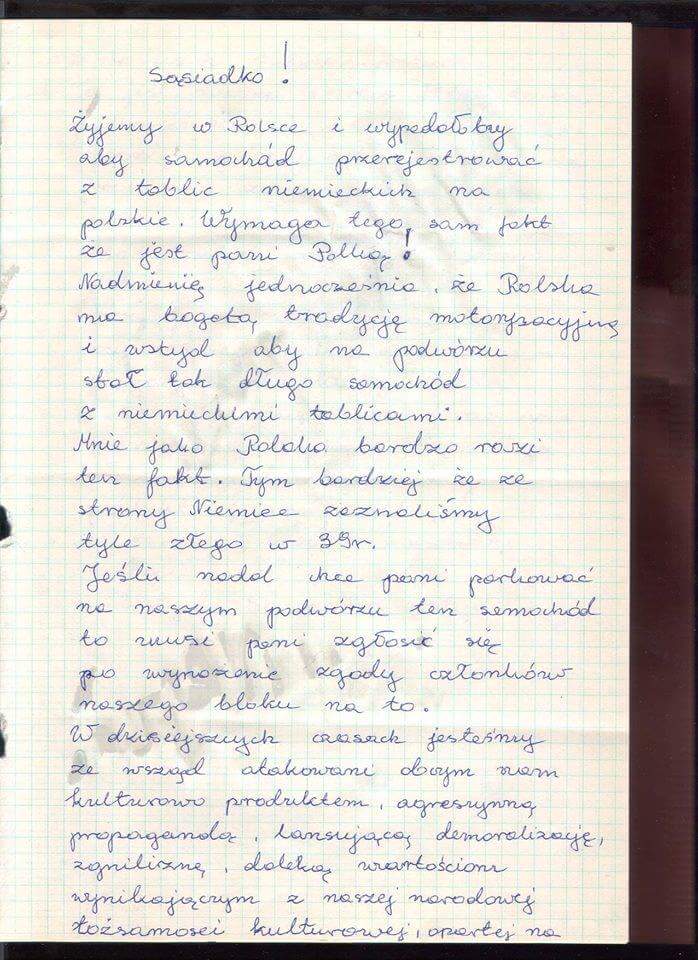 Sąsiadko!
Żyjemy w Polsce i wypadałoby
aby samochód przerejestrować
z tablic niemieckich na
polskie. Wymaga tego, sam fakt
że jest pani Polką!
Nadmienię jednocześnie, że Polska
ma bogatą tradycję motoryzacyjną
i wstyd aby na podwórzu
stał tak długo samochód
z niemieckimi tablicami.
Mnie jako Polaka bardzo razi
ten fakt. Tym bardziej że ze
strony Niemiec zaznaliśmy
tyle złego w 39r.
Jeśli nadal chce pani parkować
na naszym podwórzu ten samochód
to musi pani zgłosić się
po wyrażenie zgody członków
naszego bloku na to.
W dzisiejszych czasach jesteśmy
ze wsząd atakowani obcym nam
kulturowo produktem, agresywną
propagandą, lansującą demoralizację,
zgniliznę, daleką wartościom
wynikającym z naszej narodowej
tożsamości kulturowej, opartej na